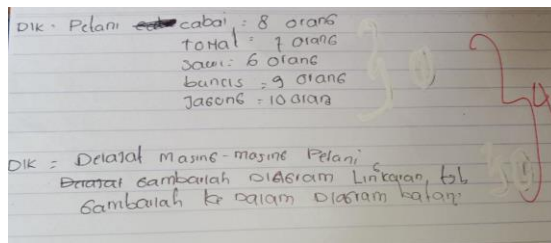 DIK - Petani cabai : 8 orang
tomat : 7 orang
sawi : 6 orang
buncis = 9 orang
Jagong = 10 orang
DIK = Delajat masing-masing Petani
Gambarlah Diagram Lingkaran, tbl
Gambarlah ke Dalam Diagram batang